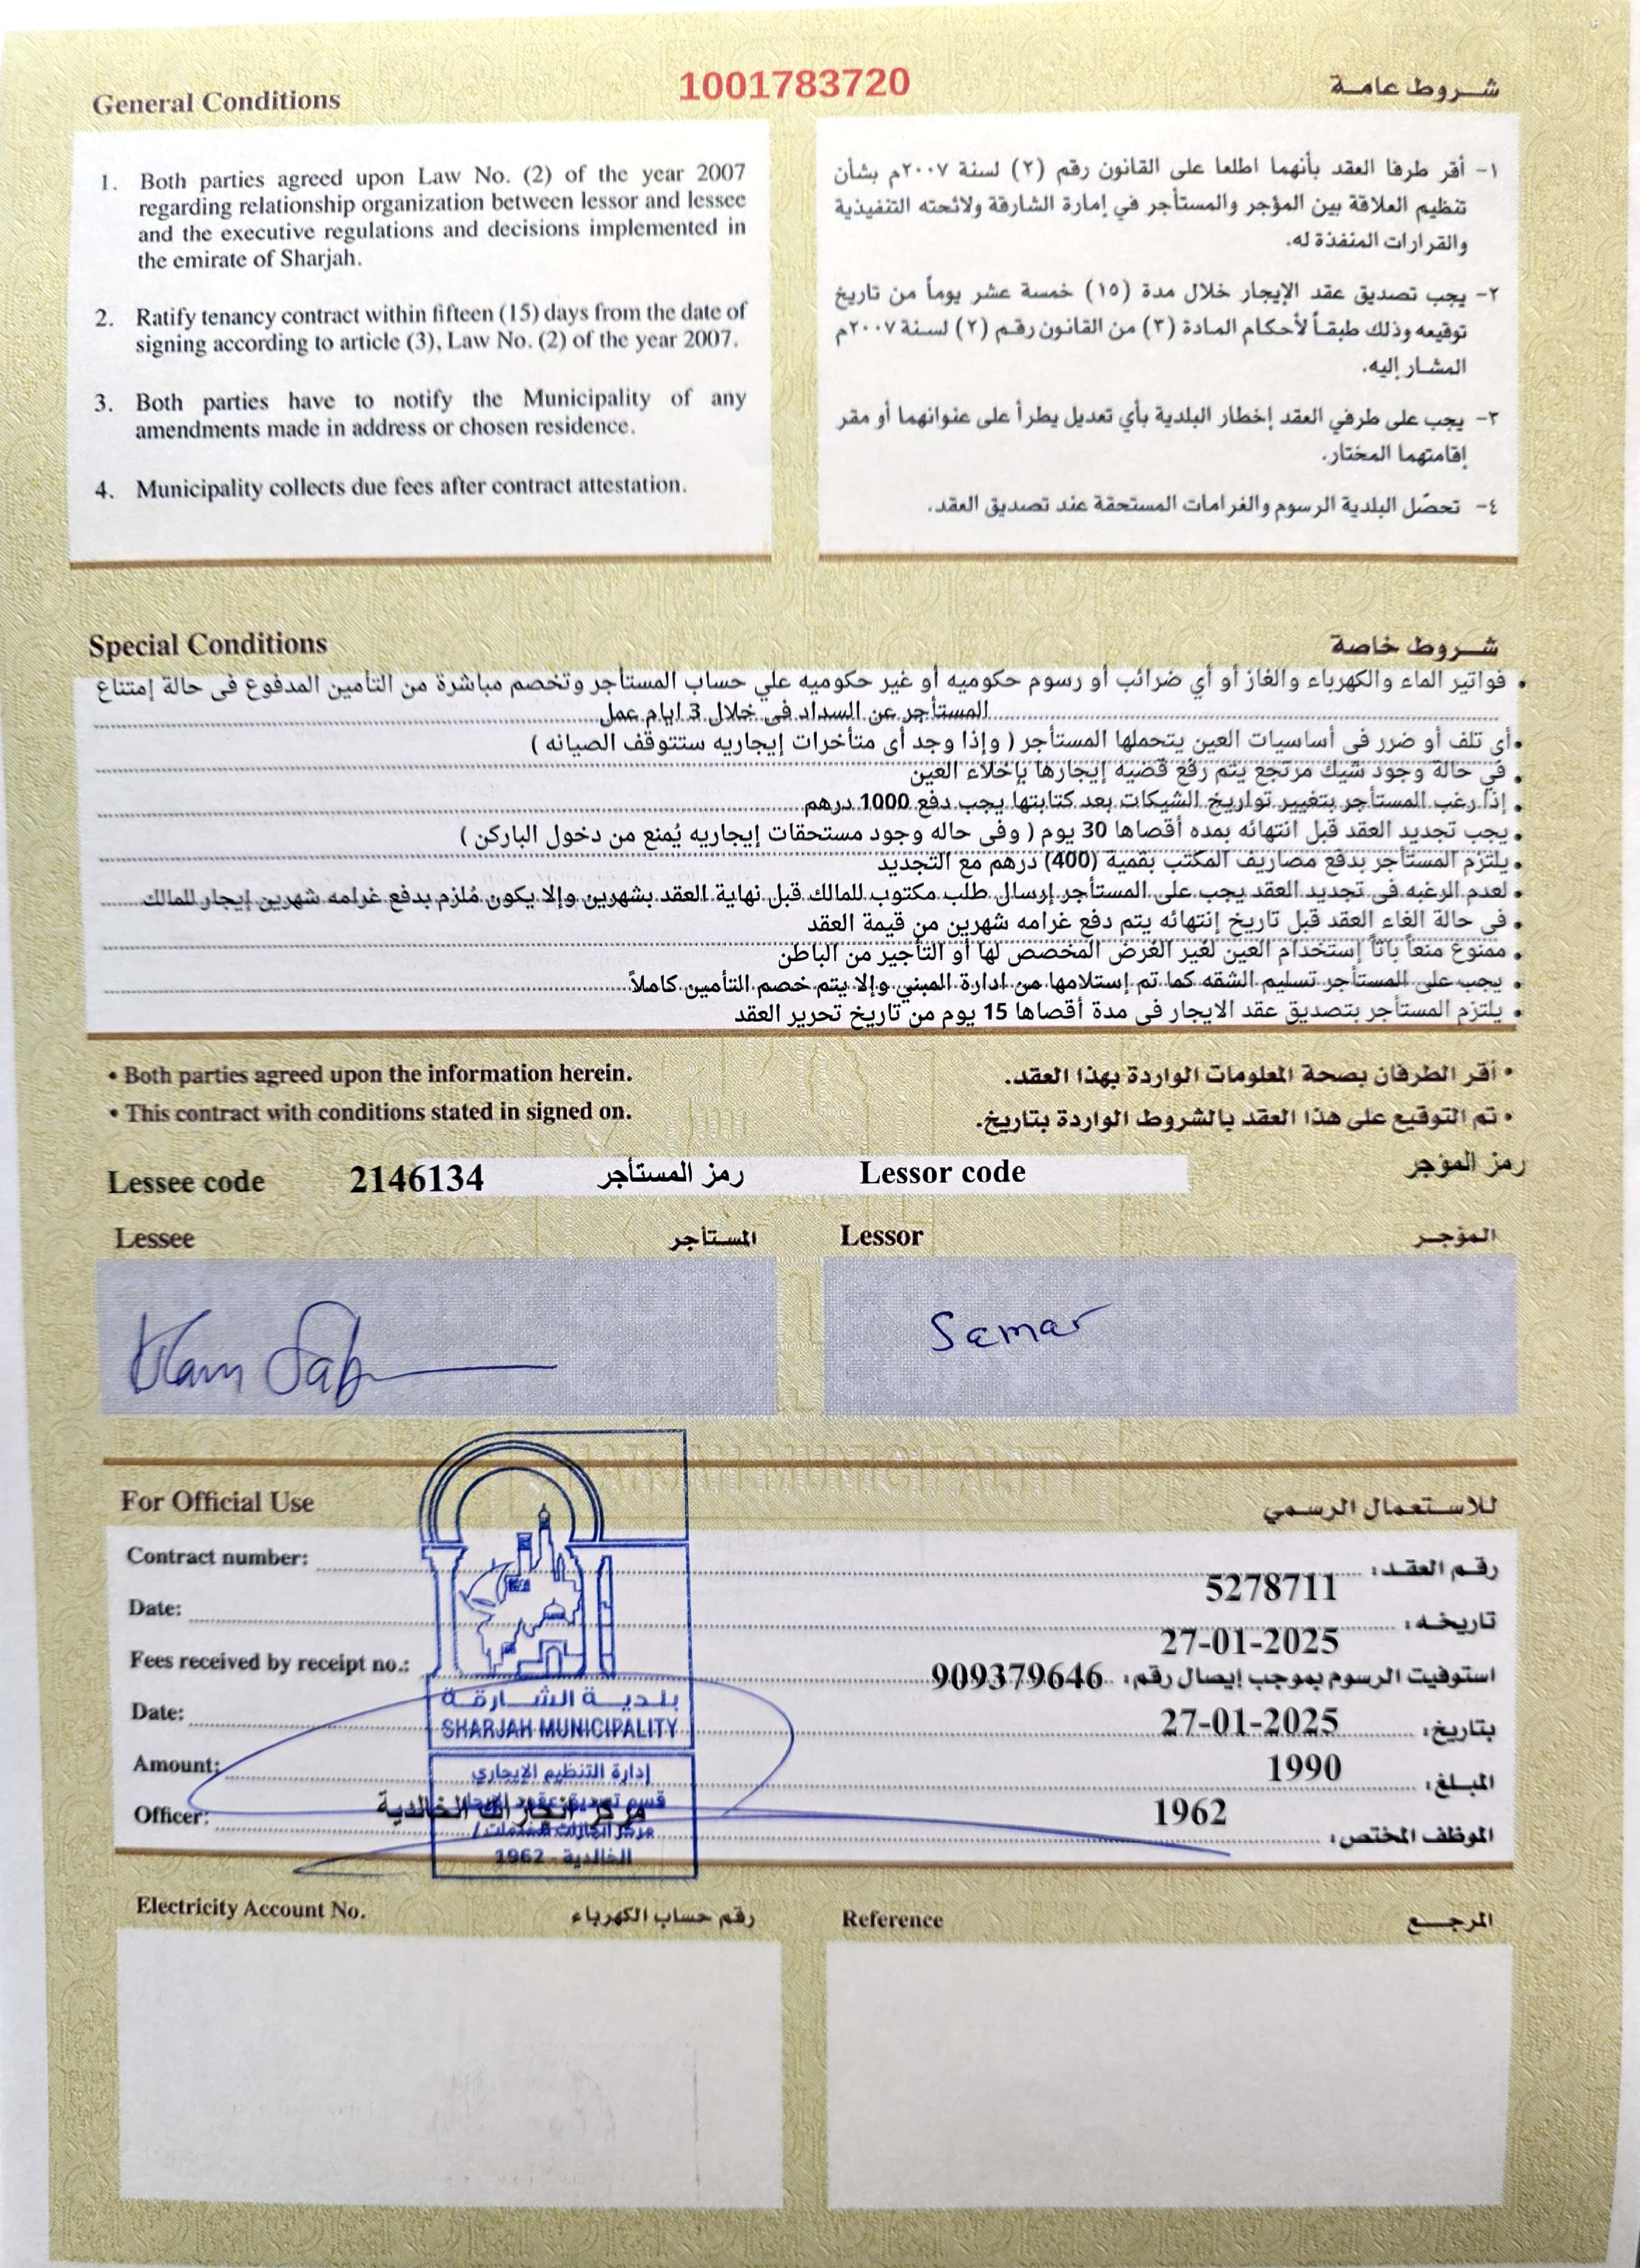 1001783720
General Conditions
شروط عامة
1. Both parties agreed upon Law No. (2) of the year 2007
regarding relationship organization between lessor and lessee
and the executive regulations and decisions implemented in
the emirate of Sharjah.
2. Ratify tenancy contract within fifteen (15) days from the date of
signing according to article (3), Law No. (2) of the year 2007.
3. Both parties have to notify the Municipality of any
amendments made in address or chosen residence.
4. Municipality collects due fees after contract attestation.
١- أقر طرفا العقد بأنهما اطلعا على القانون رقم (٢) لسنة ٢٠٠٧م بشأن
تنظيم العلاقة بين المؤجر والمستأجر في إمارة الشارقة ولائحته التنفيذية
والقرارات المنفذة له.
٢- يجب تصديق عقد الإيجار خلال مدة (١٥) خمسة عشر يوماً من تاريخ
توقيعه وذلك طبقاً لأحكام المادة (٣) من القانون رقم (٢) لسنة ٢٠٠٧م
المشار إليه.
٣- يجب على طرفي العقد إخطار البلدية بأي تعديل يطرأ على عنوانهما أو مقر
إقامتهما المختار.
٤- تحصّل البلدية الرسوم والغرامات المستحقة عند تصديق العقد.
Special Conditions
شروط خاصة
• فواتير الماء والكهرباء والغاز أو أي ضرائب أو رسوم حكوميه أو غير حكوميه علي حساب المستأجر وتخصم مباشرة من التأمين المدفوع فى حالة إمتناع
المستأجر عن السداد في خلال 3 ايام عمل
• أى تلف أو ضرر فى أساسيات العين يتحملها المستأجر ( وإذا وجد أى متأخرات إيجاريه ستتوقف الصيانه )
• في حالة وجود شيك مرتجع يتم رفع قضيه إيجارها بإخلاء العين
• إذا رغب المستأجر بتغيير تواريخ الشيكات بعد كتابتها يجب دفع 1000 درهم
• يجب تجديد العقد قبل انتهائه بمده أقصاها 30 يوم ( وفى حاله وجود مستحقات إيجاريه يُمنع من دخول الباركن )
• يلتزم المستأجر بدفع مصاريف المكتب بقمية (400) درهم مع التجديد
• لعدم الرغبه فى تجديد العقد يجب على المستأجر إرسال طلب مكتوب للمالك قبل نهاية العقد بشهرين وإلا يكون مُلزم بدفع غرامه شهرين إيجار للمالك
• فى حالة الغاء العقد قبل تاريخ إنتهائه يتم دفع غرامه شهرين من قيمة العقد
• ممنوع منعاً باتاً إستخدام العين لغير الغرض المخصص لها أو التأجير من الباطن
• يجب على المستأجر تسليم الشقه كما تم إستلامها من ادارة المبني وإلا يتم خصم التأمين كاملاً
• يلتزم المستأجر بتصديق عقد الايجار فى مدة أقصاها 15 يوم من تاريخ تحرير العقد
• Both parties agreed upon the information herein.
• أقر الطرفان بصحة المعلومات الواردة بهذا العقد.
• This contract with conditions stated in signed on.
• تم التوقيع على هذا العقد بالشروط الواردة بتاريخ.
Lessee code 2146134 رمز المستأجر
Lessor code رمز المؤجر
Lessee المستأجر
Lessor المؤجر
Samar
For Official Use
للاستعمال الرسمي
Contract number: 5278711 رقم العقد:
Date: 27-01-2025 تاريخه:
Fees received by receipt no.: 909379646 استوفيت الرسوم بموجب إيصال رقم:
Date: 27-01-2025 بتاريخ:
Amount: 1990 المبلغ:
Officer: مركز انجازات الخالدية 1962 الموظف المختص:
بلدية الشارقة
SHARJAH MUNICIPALITY
إدارة التنظيم الإيجاري
الخالدية - 1962
Electricity Account No. رقم حساب الكهرباء
Reference المرجع